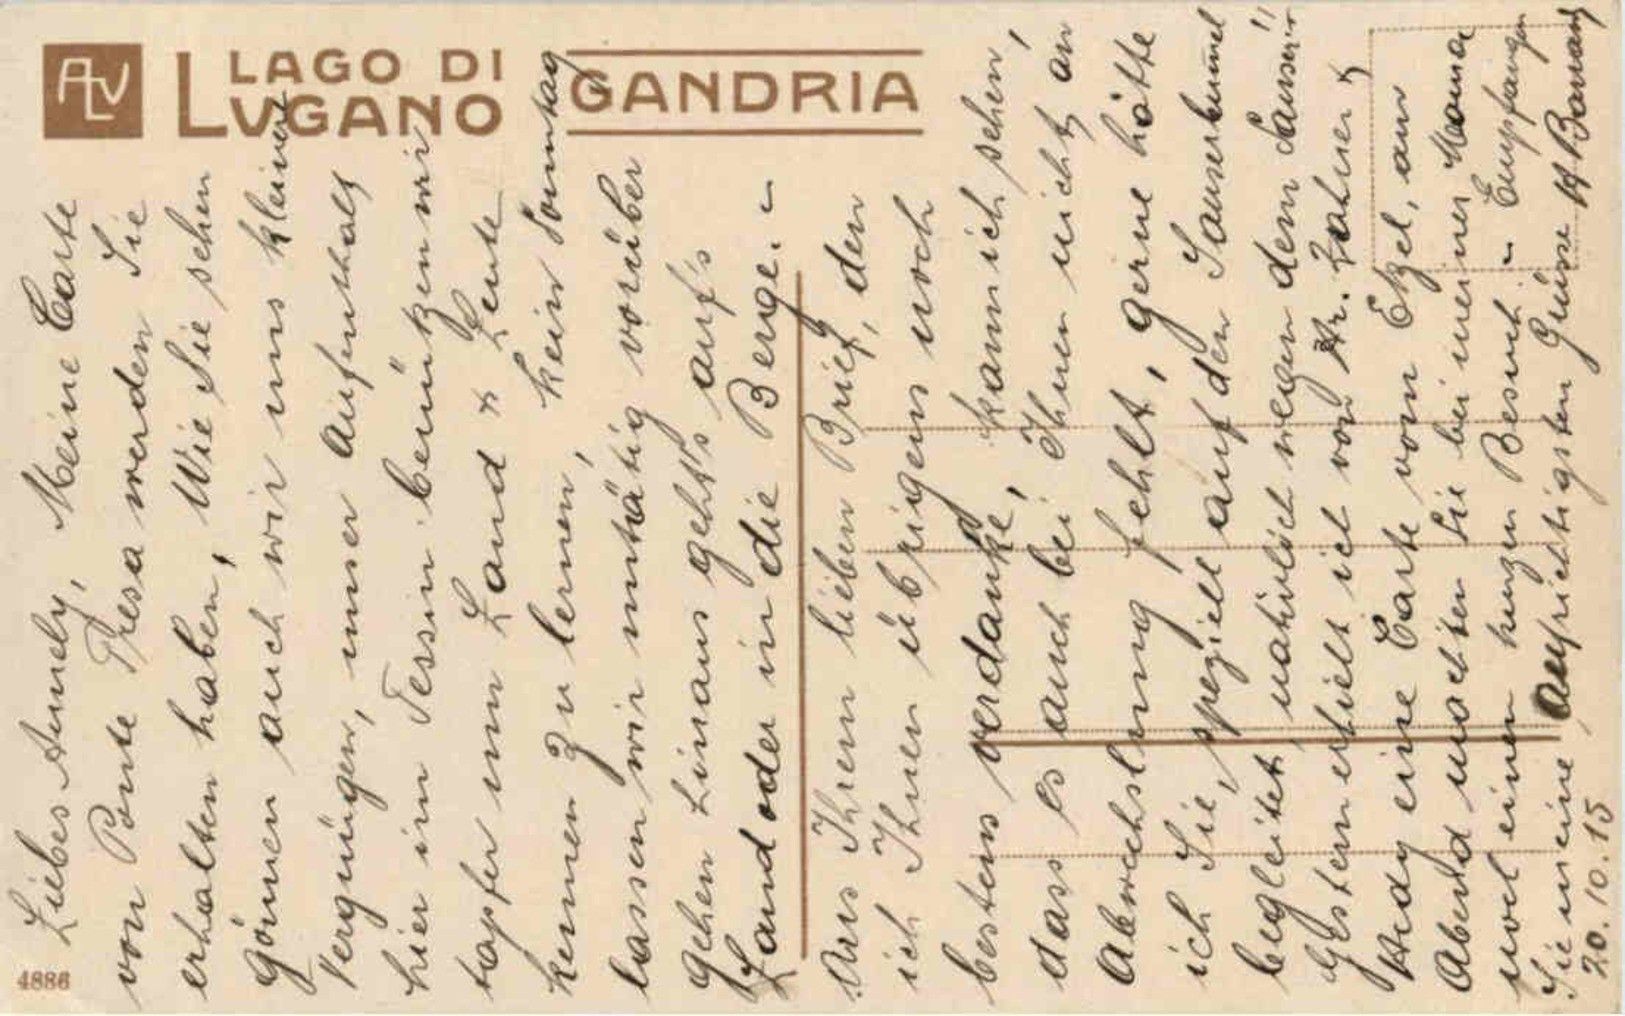 ALV
LAGO DI
LUGANO
GANDRIA
4886
Liebes Annely, Meine Carte
von Ponte Tresa werden Sie
erhalten haben, Wie Sie sehen
gönnen auch wir uns kleinere
Vergnügen, unser Aufenthalt
hier im Tessin benützen wir
tapfer um Land & Leute
kennen zu lernen, kein Sonntag
lassen wir untätig vorüber
gehen hinaus geht's auf's
Land oder in die Berge. –
Aus Ihrem lieben Brief, den
ich Ihnen übrigens noch
bestens verdanke, kann ich sehen,
dass es auch bei Ihnen nicht an
Abwechslung fehlt, gerne hätte
ich Sie, speziell auf den
begleitet, natürlich wegen dem
Gestern erhielt ich von Hr. Zahner &
Hedy eine Carte vom Etzel, am
Abend machten Sie bei meiner Mama
noch einen kurzen Besuch. – Empfangen
Sie meine aufrichtigsten Grüsse
20.10.15